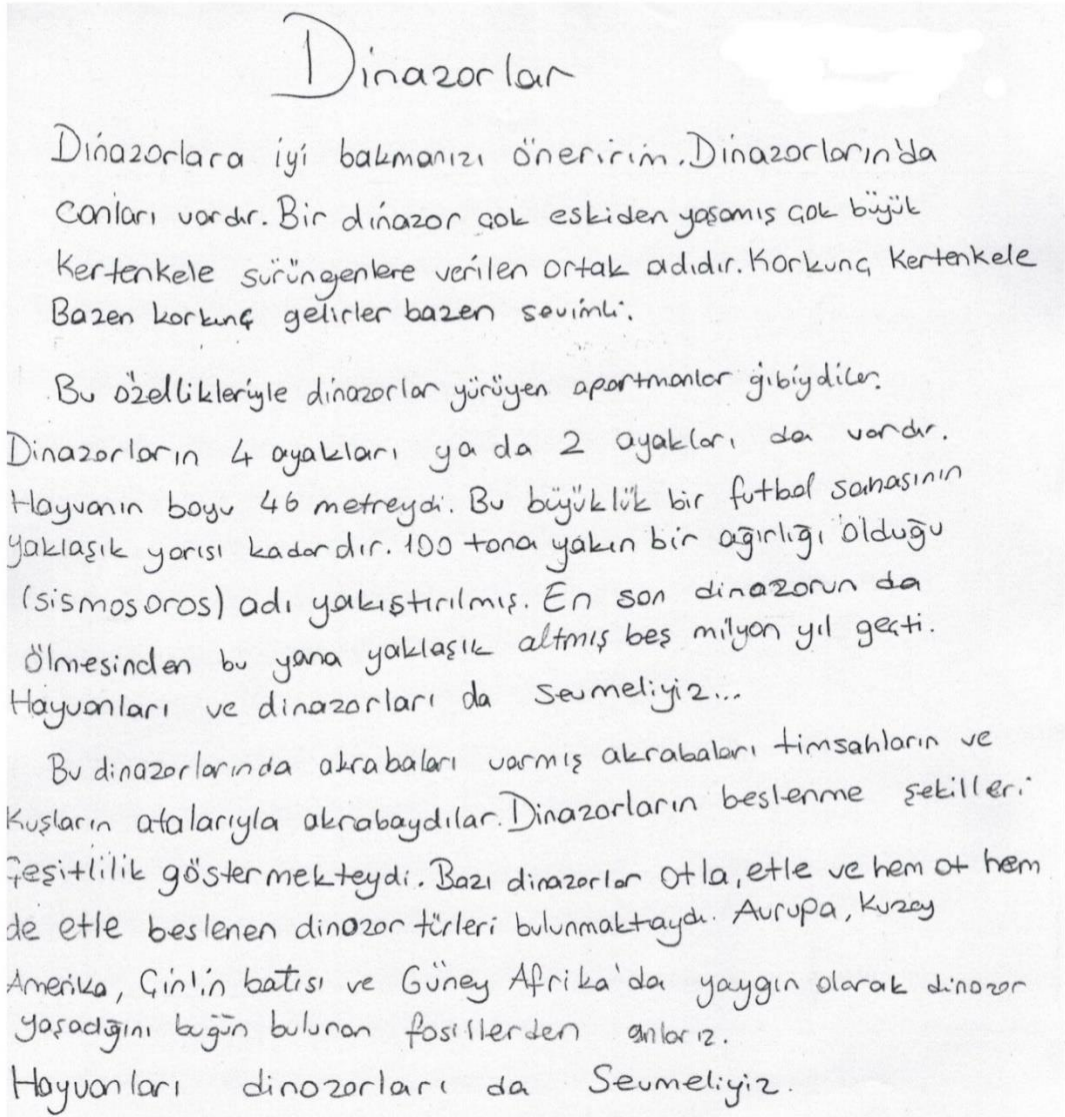 Dinazorlar
Dinazorlara iyi bakmanızı öneririm. Dinazorların'da
canları vardır. Bir dinazor çok eskiden yaşamış çok büyük
Kertenkele sürüngenlere verilen ortak adıdır. Korkunç Kertenkele
Bazen korkunç gelirler bazen sevimli.
Bu özellikleriyle dinazorlar yürüyen apartmanlar gibiydiler.
Dinazorların 4 ayakları ya da 2 ayakları da vardır.
Hayvanın boyu 46 metreydi. Bu büyüklük bir futbol sahasının
yaklaşık yarısı kadardır. 100 tona yakın bir ağırlığı olduğu
(sismosoros) adı yakıştırılmış. En son dinazorun da
ölmesinden bu yana yaklaşık altmış beş milyon yıl geçti.
Hayvanları ve dinazorları da Sevmeliyiz...
Bu dinazorlarında akrabaları varmış akrabaları timsahların ve
Kuşların atalarıyla akrabaydılar. Dinazorların beslenme şekilleri
Çeşitlilik göstermekteydi. Bazı dinazorlar otla, etle ve hem ot hem
de etle beslenen dinozor türleri bulunmaktaydı. Avrupa, Kuzey
Amerika, Çin'in batısı ve Güney Afrika'da yaygın olarak dinozor
yaşadığını bugün bulunan fosillerden anlarız.
Hayvanları dinozorları da Sevmeliyiz.